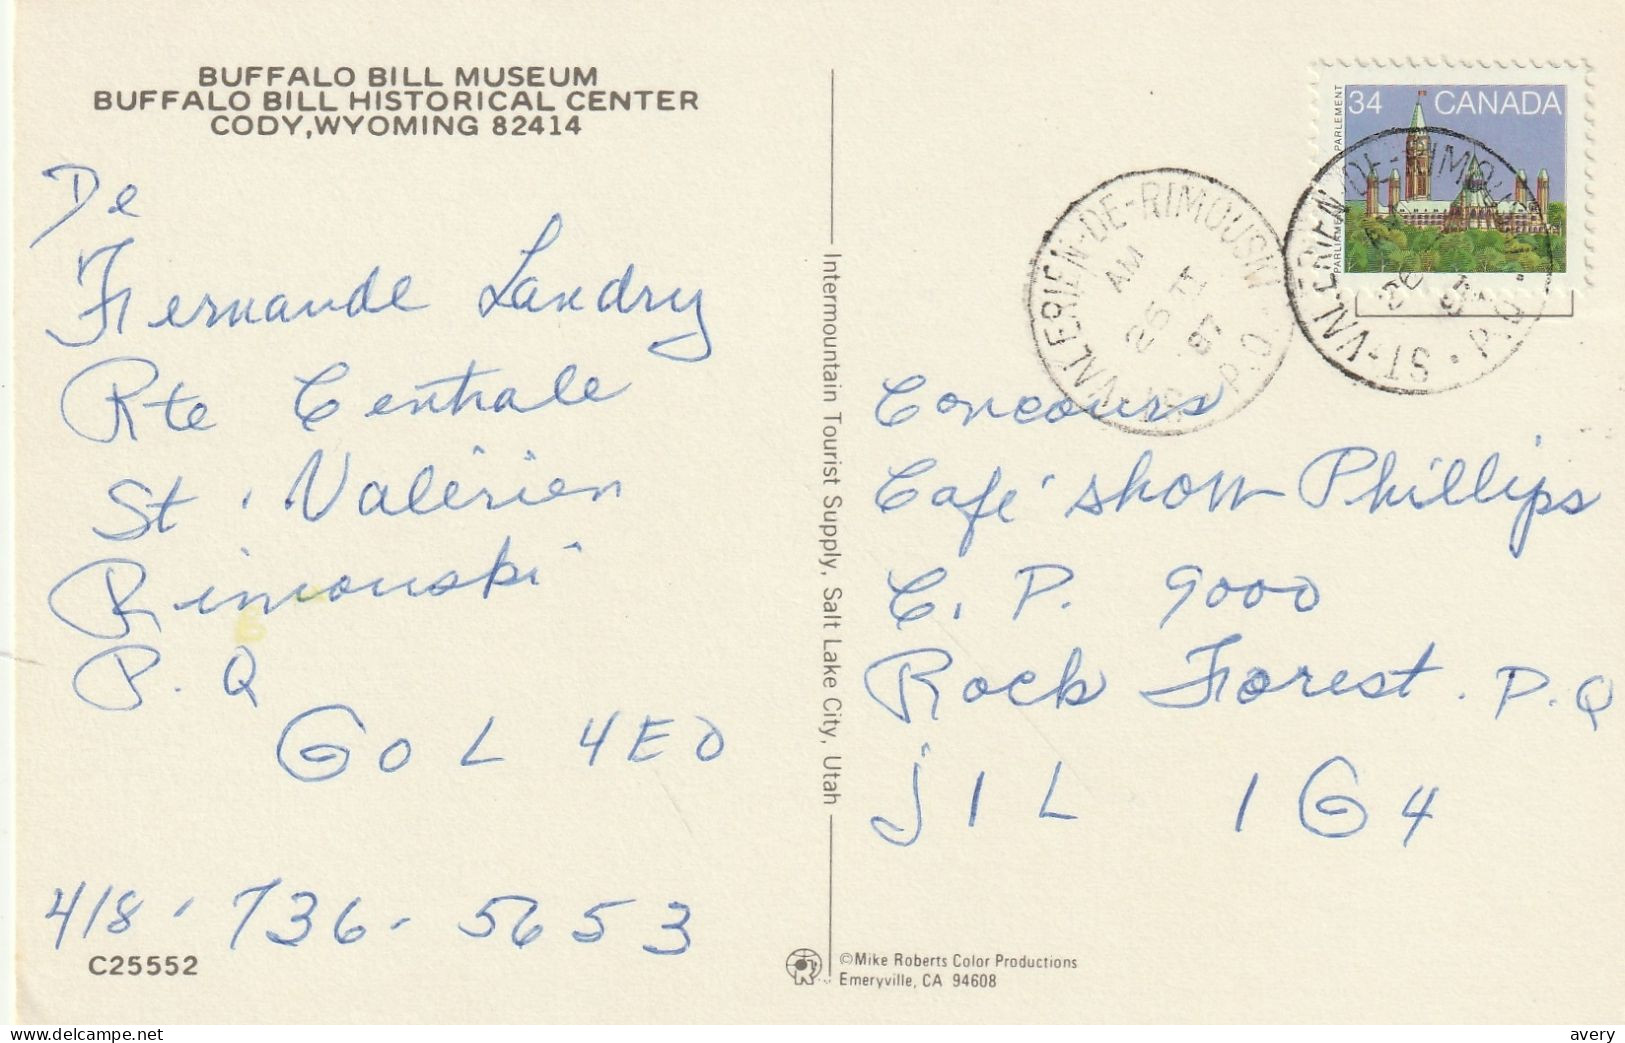 BUFFALO BILL MUSEUM
BUFFALO BILL HISTORICAL CENTER
CODY, WYOMING 82414
De
Fernande Landry
Rte Centrale
St. Valérien
Rimouski
P.Q
G0L 4E0
418-736-5653
C25552
Intermountain Tourist Supply, Salt Lake City, Utah
©Mike Roberts Color Productions
Emeryville, CA 94608
34 CANADA
PARLIAMENT PARLEMENT
ST-VALERIEN-DE-RIMOUSKI P.Q.
AM
ST-VALERIEN-DE-RIMOUSKI P.Q.
Concours
Café show Phillips
C. P. 9000
Rock Forest. P.Q
J1L 1G4
avery